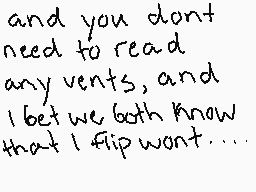 and you dont
need to read
any vents, and
I bet we both know
that I flip wont....